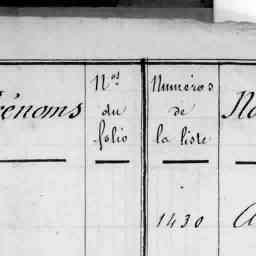 Prénoms
Nos
du
folio
Numéros
de
la liste
1430